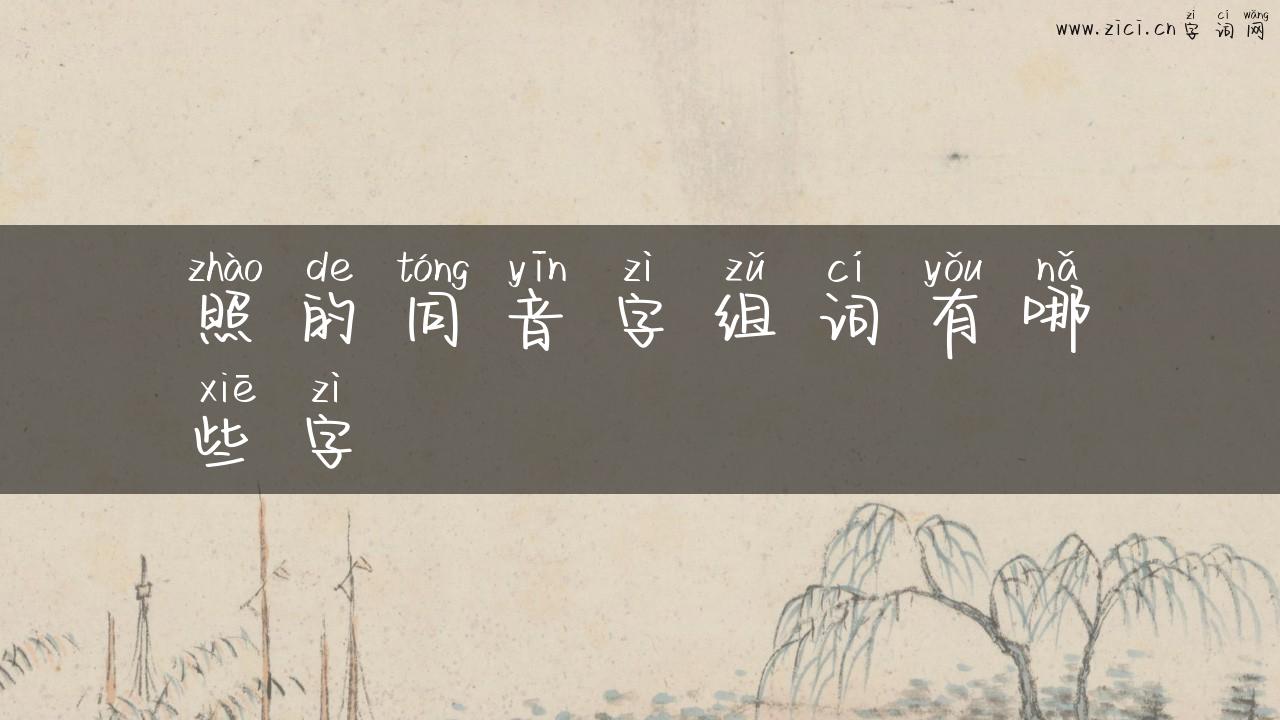 zì cí wǎng
www.zici.cn 字词网
zhào de tóng yīn zì zǔ cí yǒu nǎ
照的同音字组词有哪
xiē zì
些字